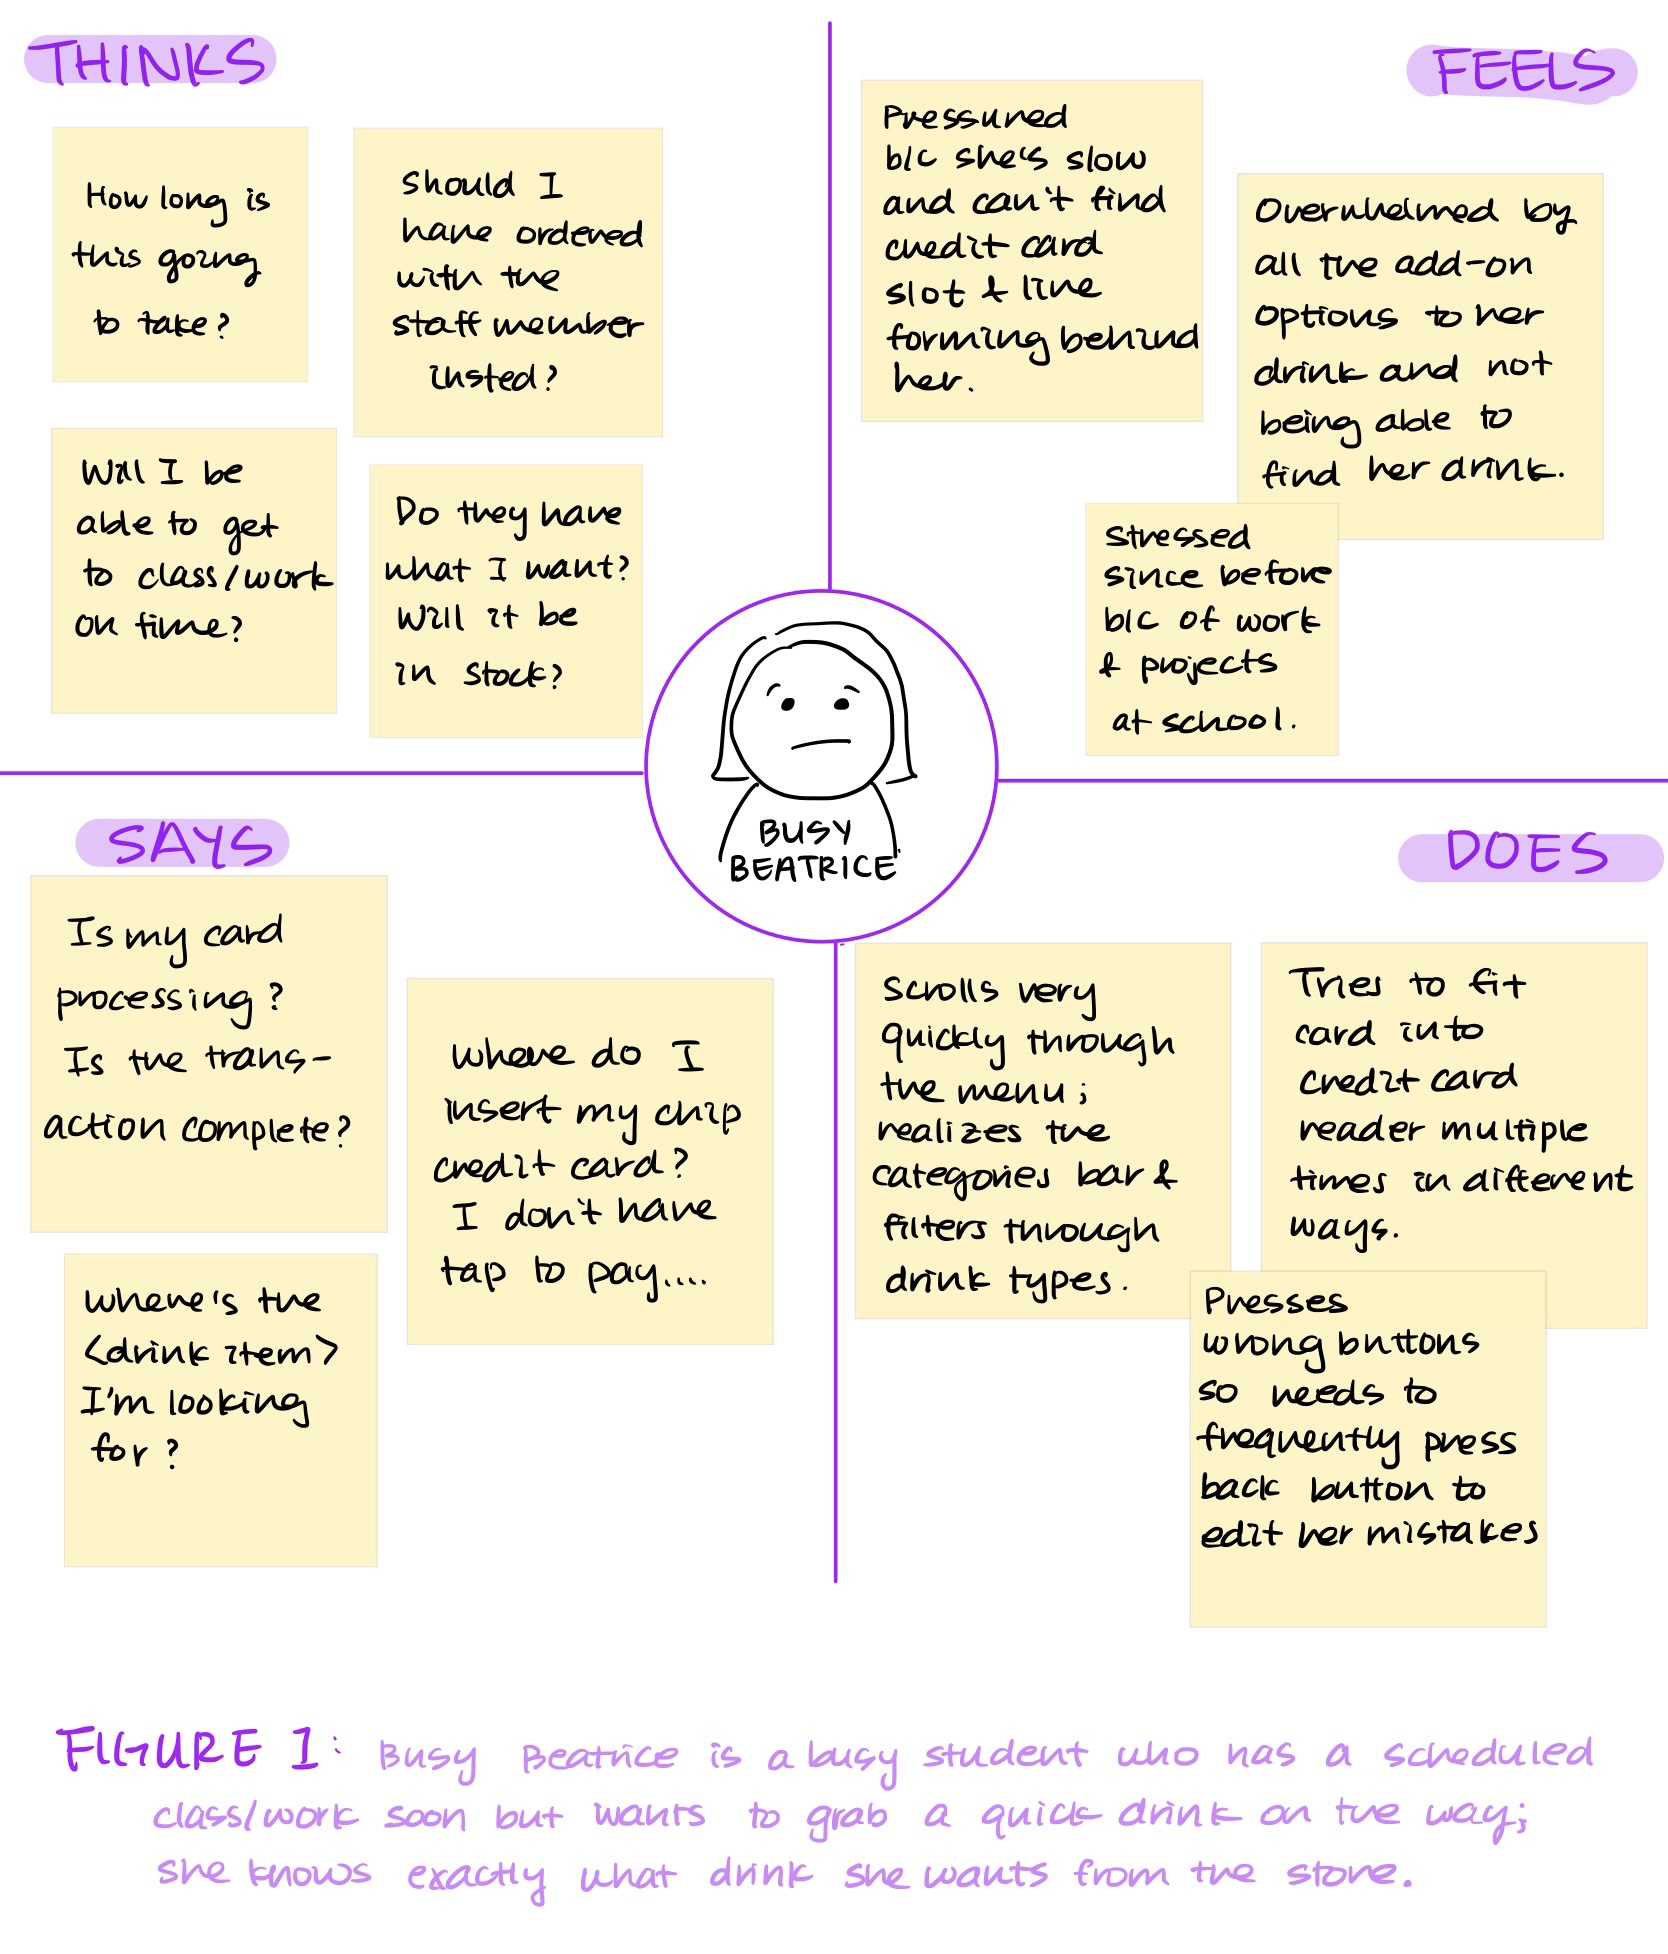 THINKS
How long is
this going
to take?
Should I
have ordered
with the
staff member
insted?
Will I be
able to get
to class/work
on time?
Do they have
what I want?
Will it be
in stock?
FEELS
Pressured
b/c she's slow
and can't find
credit card
slot & line
forming behind
her.
Overwhelmed by
all the add-on
options to her
drink and not
being able to
find her drink.
Stressed
since before
b/c of work
& projects
at school.
BUSY
BEATRICE
SAYS
Is my card
processing?
Is the trans-
action complete?
Where do I
insert my chip
credit card?
I don't have
tap to pay....
Where's the
<drink item>
I'm looking
for?
DOES
Scrolls very
quickly through
the menu;
realizes the
categories bar &
filters through
drink types.
Tries to fit
card into
credit card
reader multiple
times in different
ways.
Presses
wrong buttons
so needs to
frequently press
back button to
edit her mistakes
FIGURE 1: Busy Beatrice is a busy student who has a scheduled
class/work soon but wants to grab a quick drink on the way;
she knows exactly what drink she wants from the store.